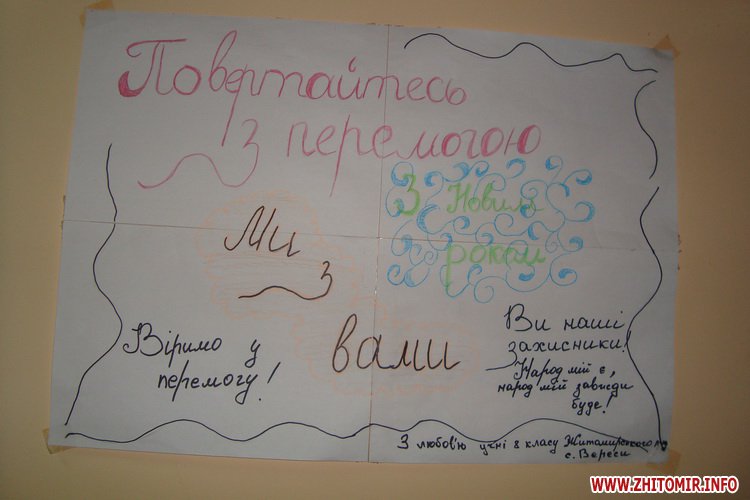 Повертайтесь
з перемогою
З Новим
роком
Ми
з
вами
Віримо у
перемогу!
Ви наші
захисники!
Народ мій є,
народ мій завжди
буде!
З любов'ю учні 8 класу Житомирського
с. Вереси
WWW.ZHITOMIR.INFO